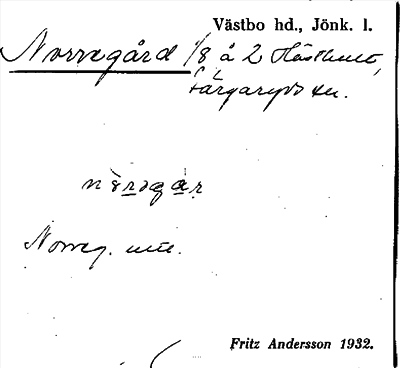 Västbo hd., Jönk. l.
Norregård 1/8 å 2 Hästhult,
Färgaryds sn.
Norreg.
Fritz Andersson 1932.